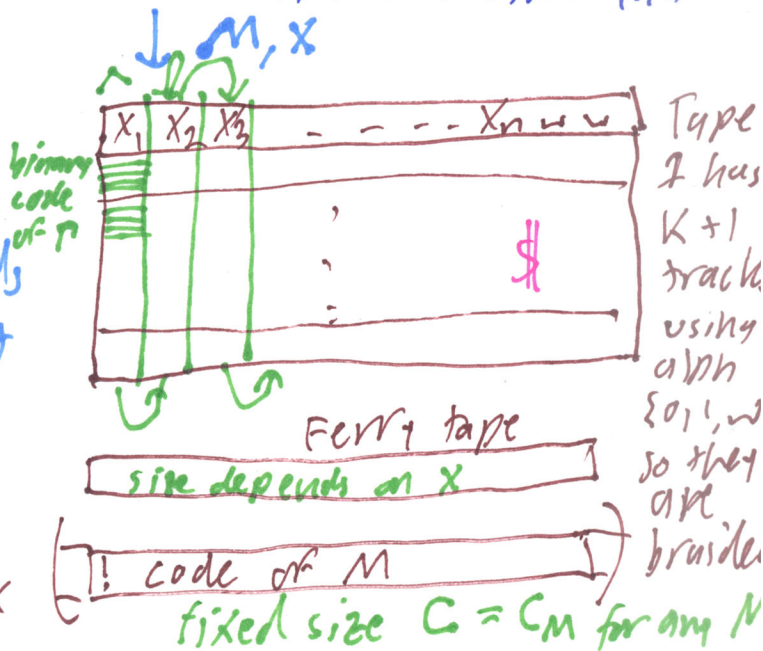 M, X
X₁ X₂ X₃ - - - - - Xn ω ω
binary
code
of Γ
$
Tape
1 has
K+1
tracks
using
alph
{0,1,ω
so they
are
braided
Ferry tape
size depends on X
! code of M
fixed size C = C_M for any M